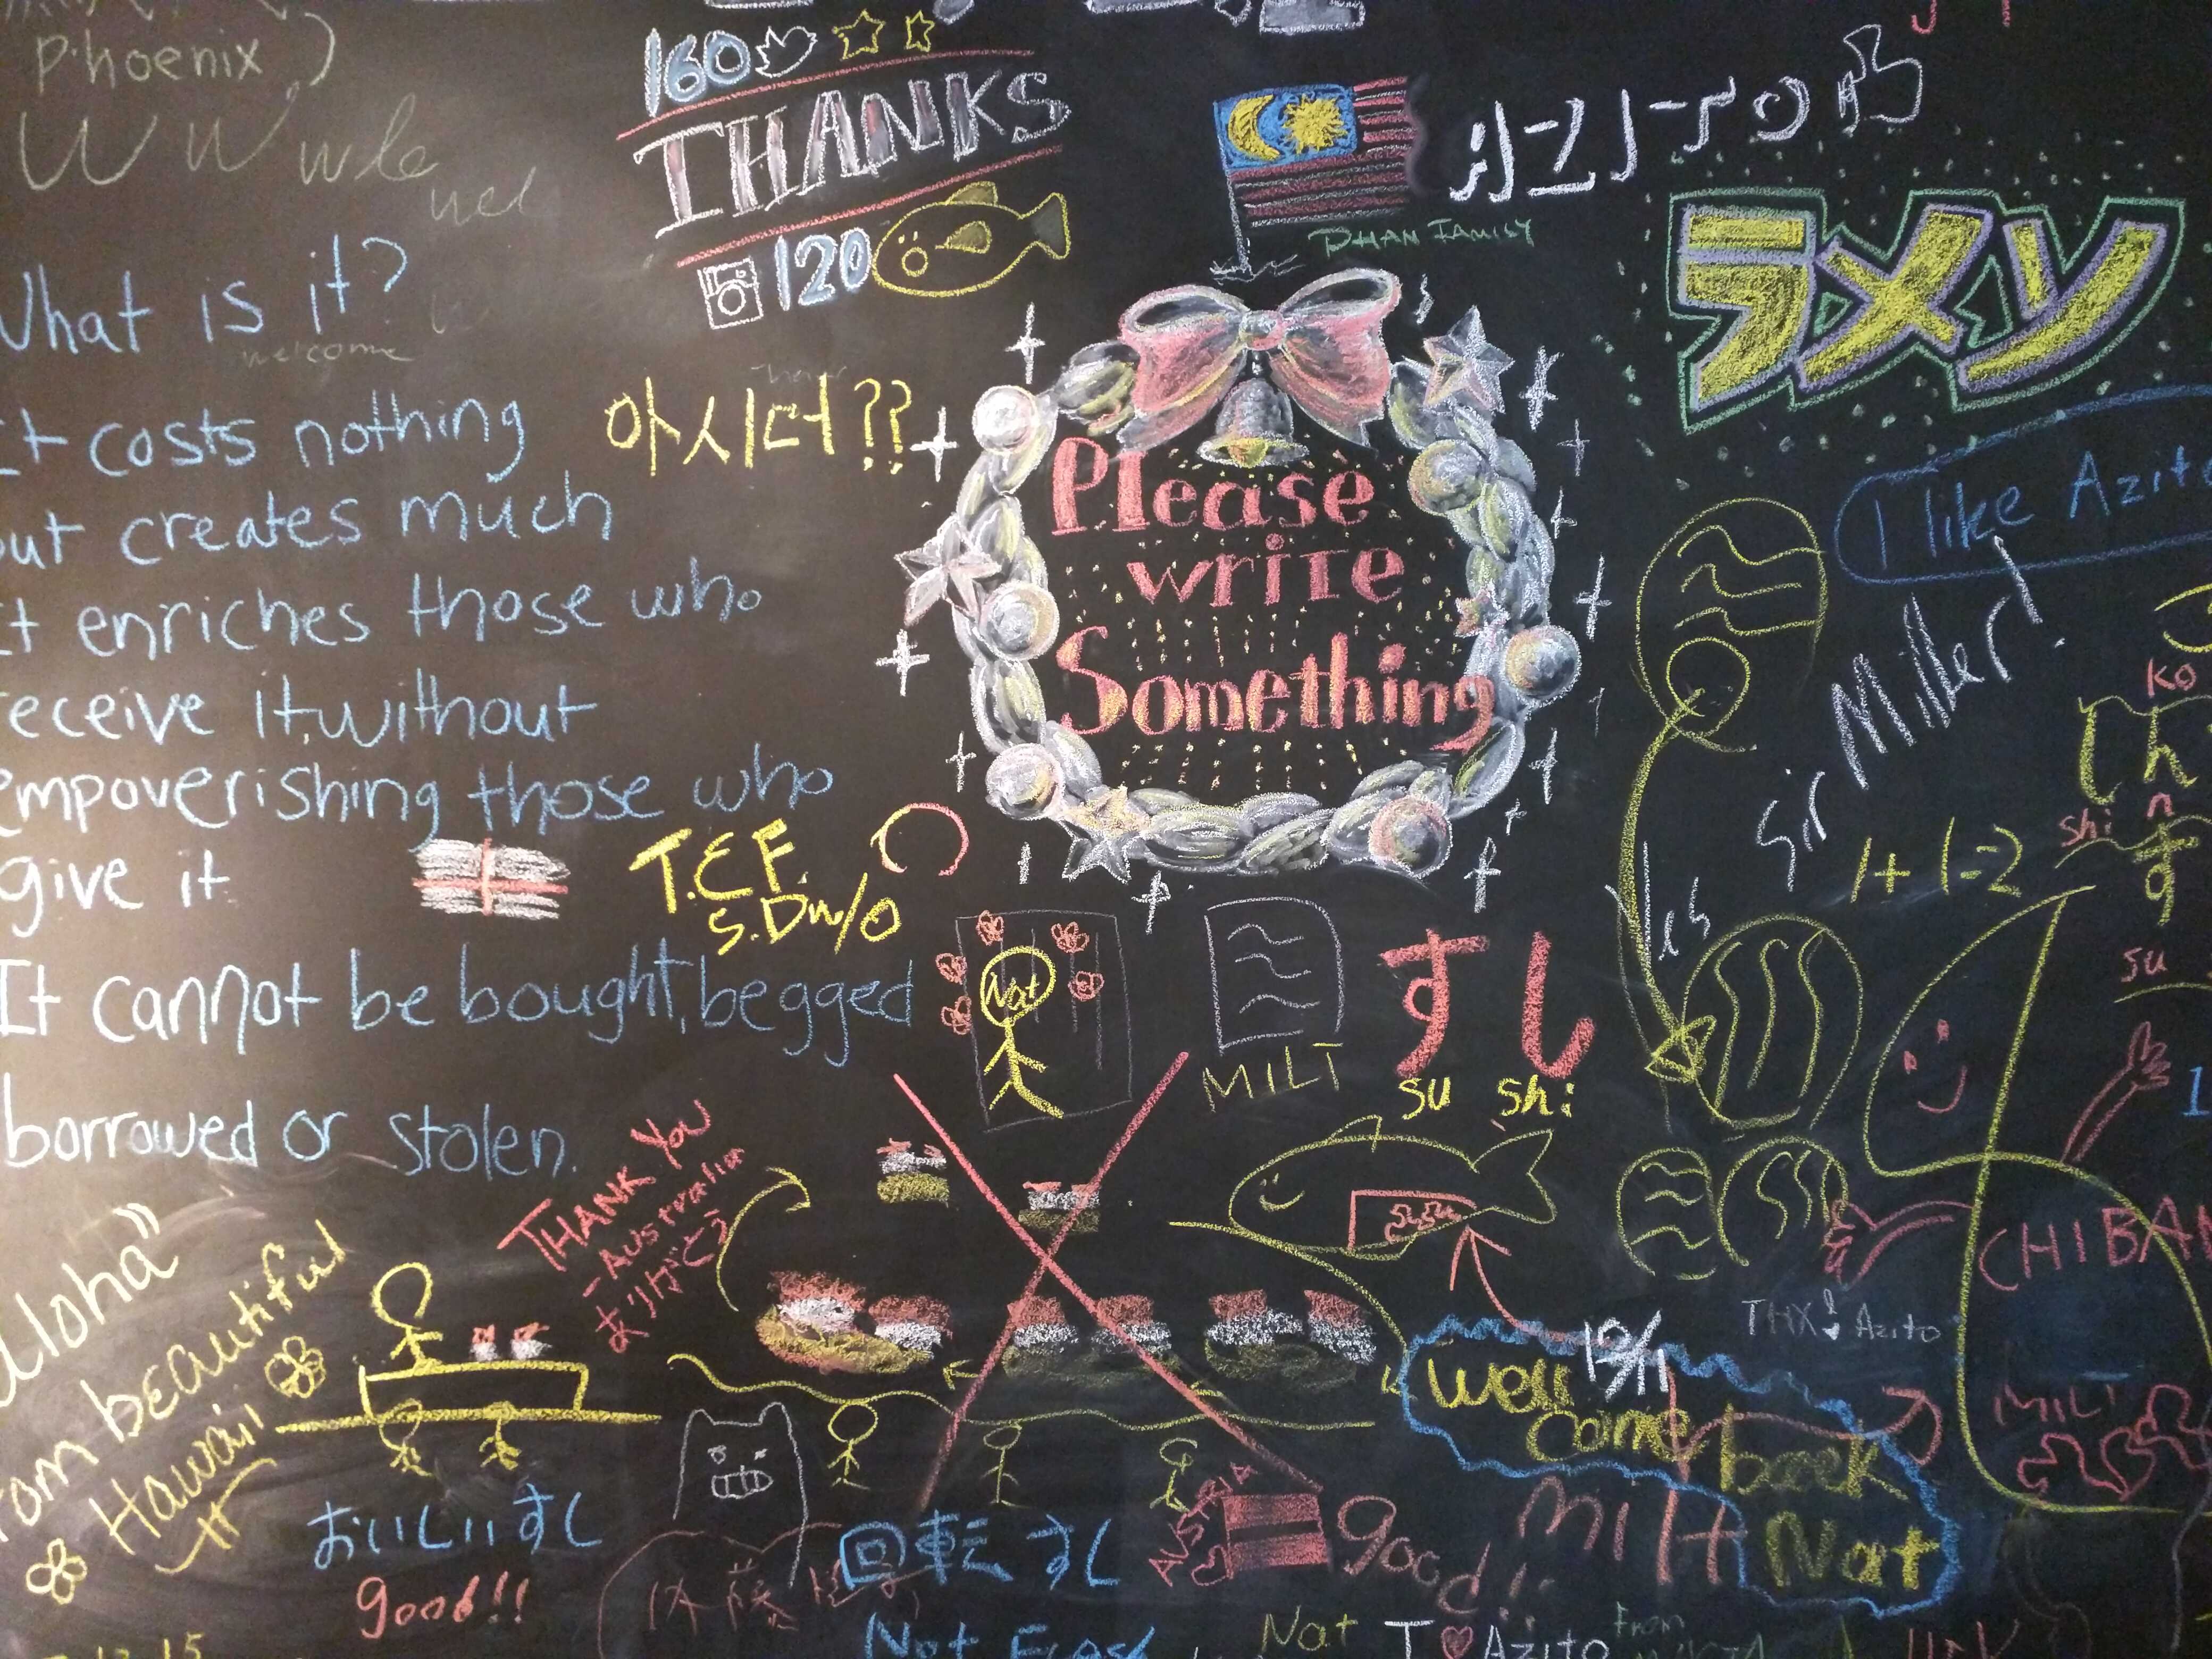 Phoenix)
160
THANKS
120
PHAN FAMILY
ラメソ
What is it?
welcome
It costs nothing
but creates much
It enriches those who
receive it, without
empoverishing those who
give it
It cannot be bought, begged
borrowed or stolen.
아시더??
Please
write
Something
I like Azito
Sir Miller!
1+1=2
T.E.F.
S.Dw/o
Nat
MILT
すし
su shi
ko
shi
su
THANK YOU
-Australia
ありがとう
Aloha"
from beautiful
Hawaii
おいしいすし
good!!
回転すし
Not
AUSTRIA
good!!
milt
19/11
well
come
back
Nat
THX! Azito
CHIBA
MILT
Nat
I ♥ Azito
From